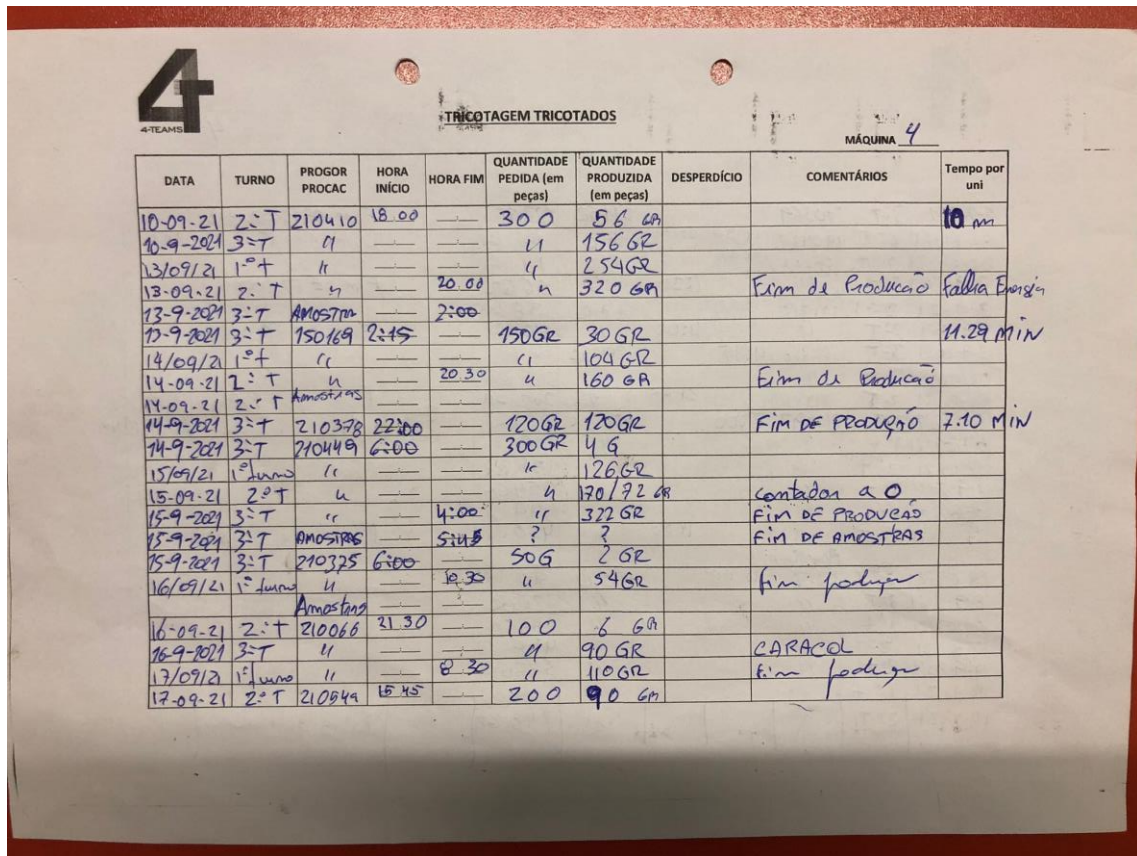 4
4-TEAMS
TRICOTAGEM TRICOTADOS
MÁQUINA 4
DATA TURNO PROGOR PROCAC HORA INÍCIO HORA FIM QUANTIDADE PEDIDA (em peças) QUANTIDADE PRODUZIDA (em peças) DESPERDÍCIO COMENTÁRIOS Tempo por uni
10-09-21 2º T 210410 18.00 300 56 GR 10 m
10-9-2021 3ºT " " 156 GR
13/09/21 1ºT " " 254GR
13-09-21 2º T " 20.00 " 320 GR Fim de Producão Falha Energia
13-9-2021 3ºT AMOSTRA 2:00
13-9-2021 3ºT 150169 2:15 150GR 30 GR 11.29 MIN
14/09/21 1ºT " " 104 GR
14-09-21 2º T " 20 30 " 160 GR Fim de Producão
14-09-21 2º T Amostras
14-9-2021 3ºT 210378 22:00 120GR 120GR FIM DE PRODUÇÃO 7.10 MIN
14-9-2021 3ºT 210449 6:00 300GR 4 G
15/09/21 1º turno " " 126GR
15-09-21 2º T " " 170/72 GR contador a 0
15-9-2021 3ºT " 4:00 " 322 GR FIM DE PRODUCÃO
15-9-2021 3ºT AMOSTRAS 5:45 ? ? FIM DE AMOSTRAS
15-9-2021 3ºT 210375 6:00 50G 2 GR
16/09/21 1º turno " 10 30 " 54GR fim
Amostras
16-09-21 2º T 210066 21.30 100 6 GR
16-9-2021 3ºT " " 90 GR CARACOL
17/09/21 1º turno " 8 30 " 110GR fim
17-09-21 2º T 210549 15 45 200 90 GR